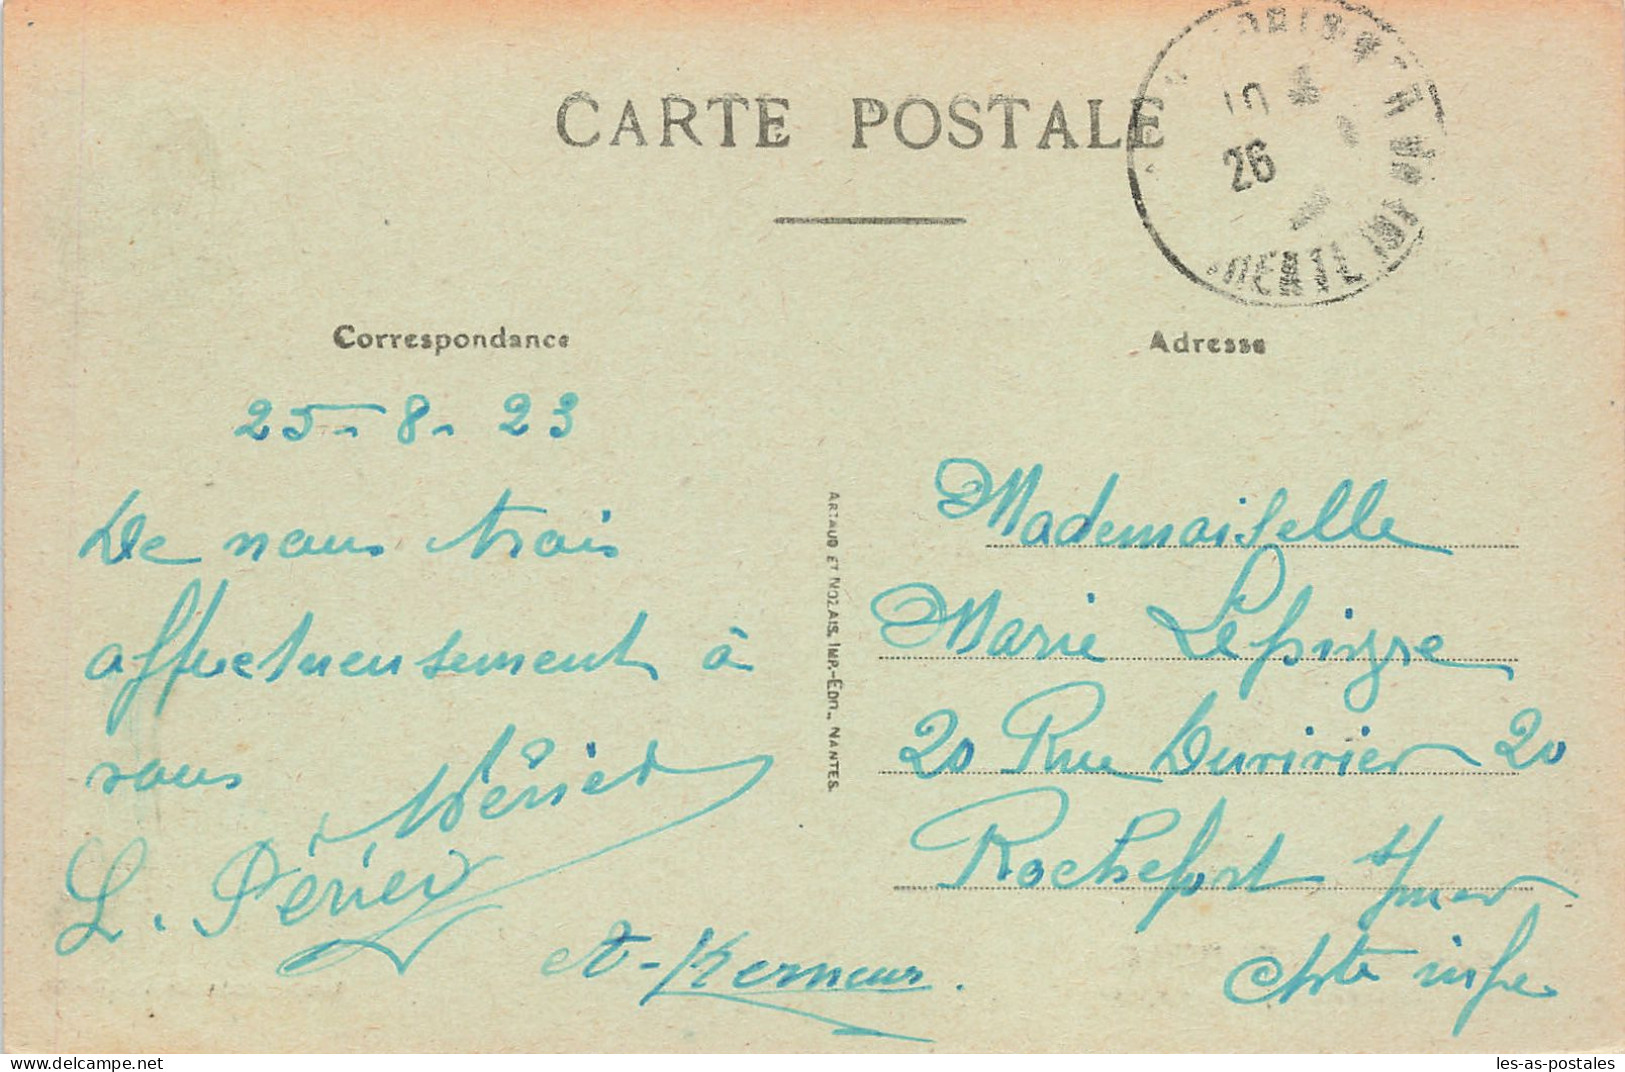 CARTE POSTALE
26
Correspondance
Adresse
25-8-23
De nous trois
affectueusement à
vous
L. Périer
A-Kerneur.
ARTAUD ET NOZAIS, IMP.-EDIT., NANTES.
Mademoiselle
Marie Lepingre
20 Rue Duvivier 20
Rochefort s/mer
Chte infre
delcampe.net
les-as-postales